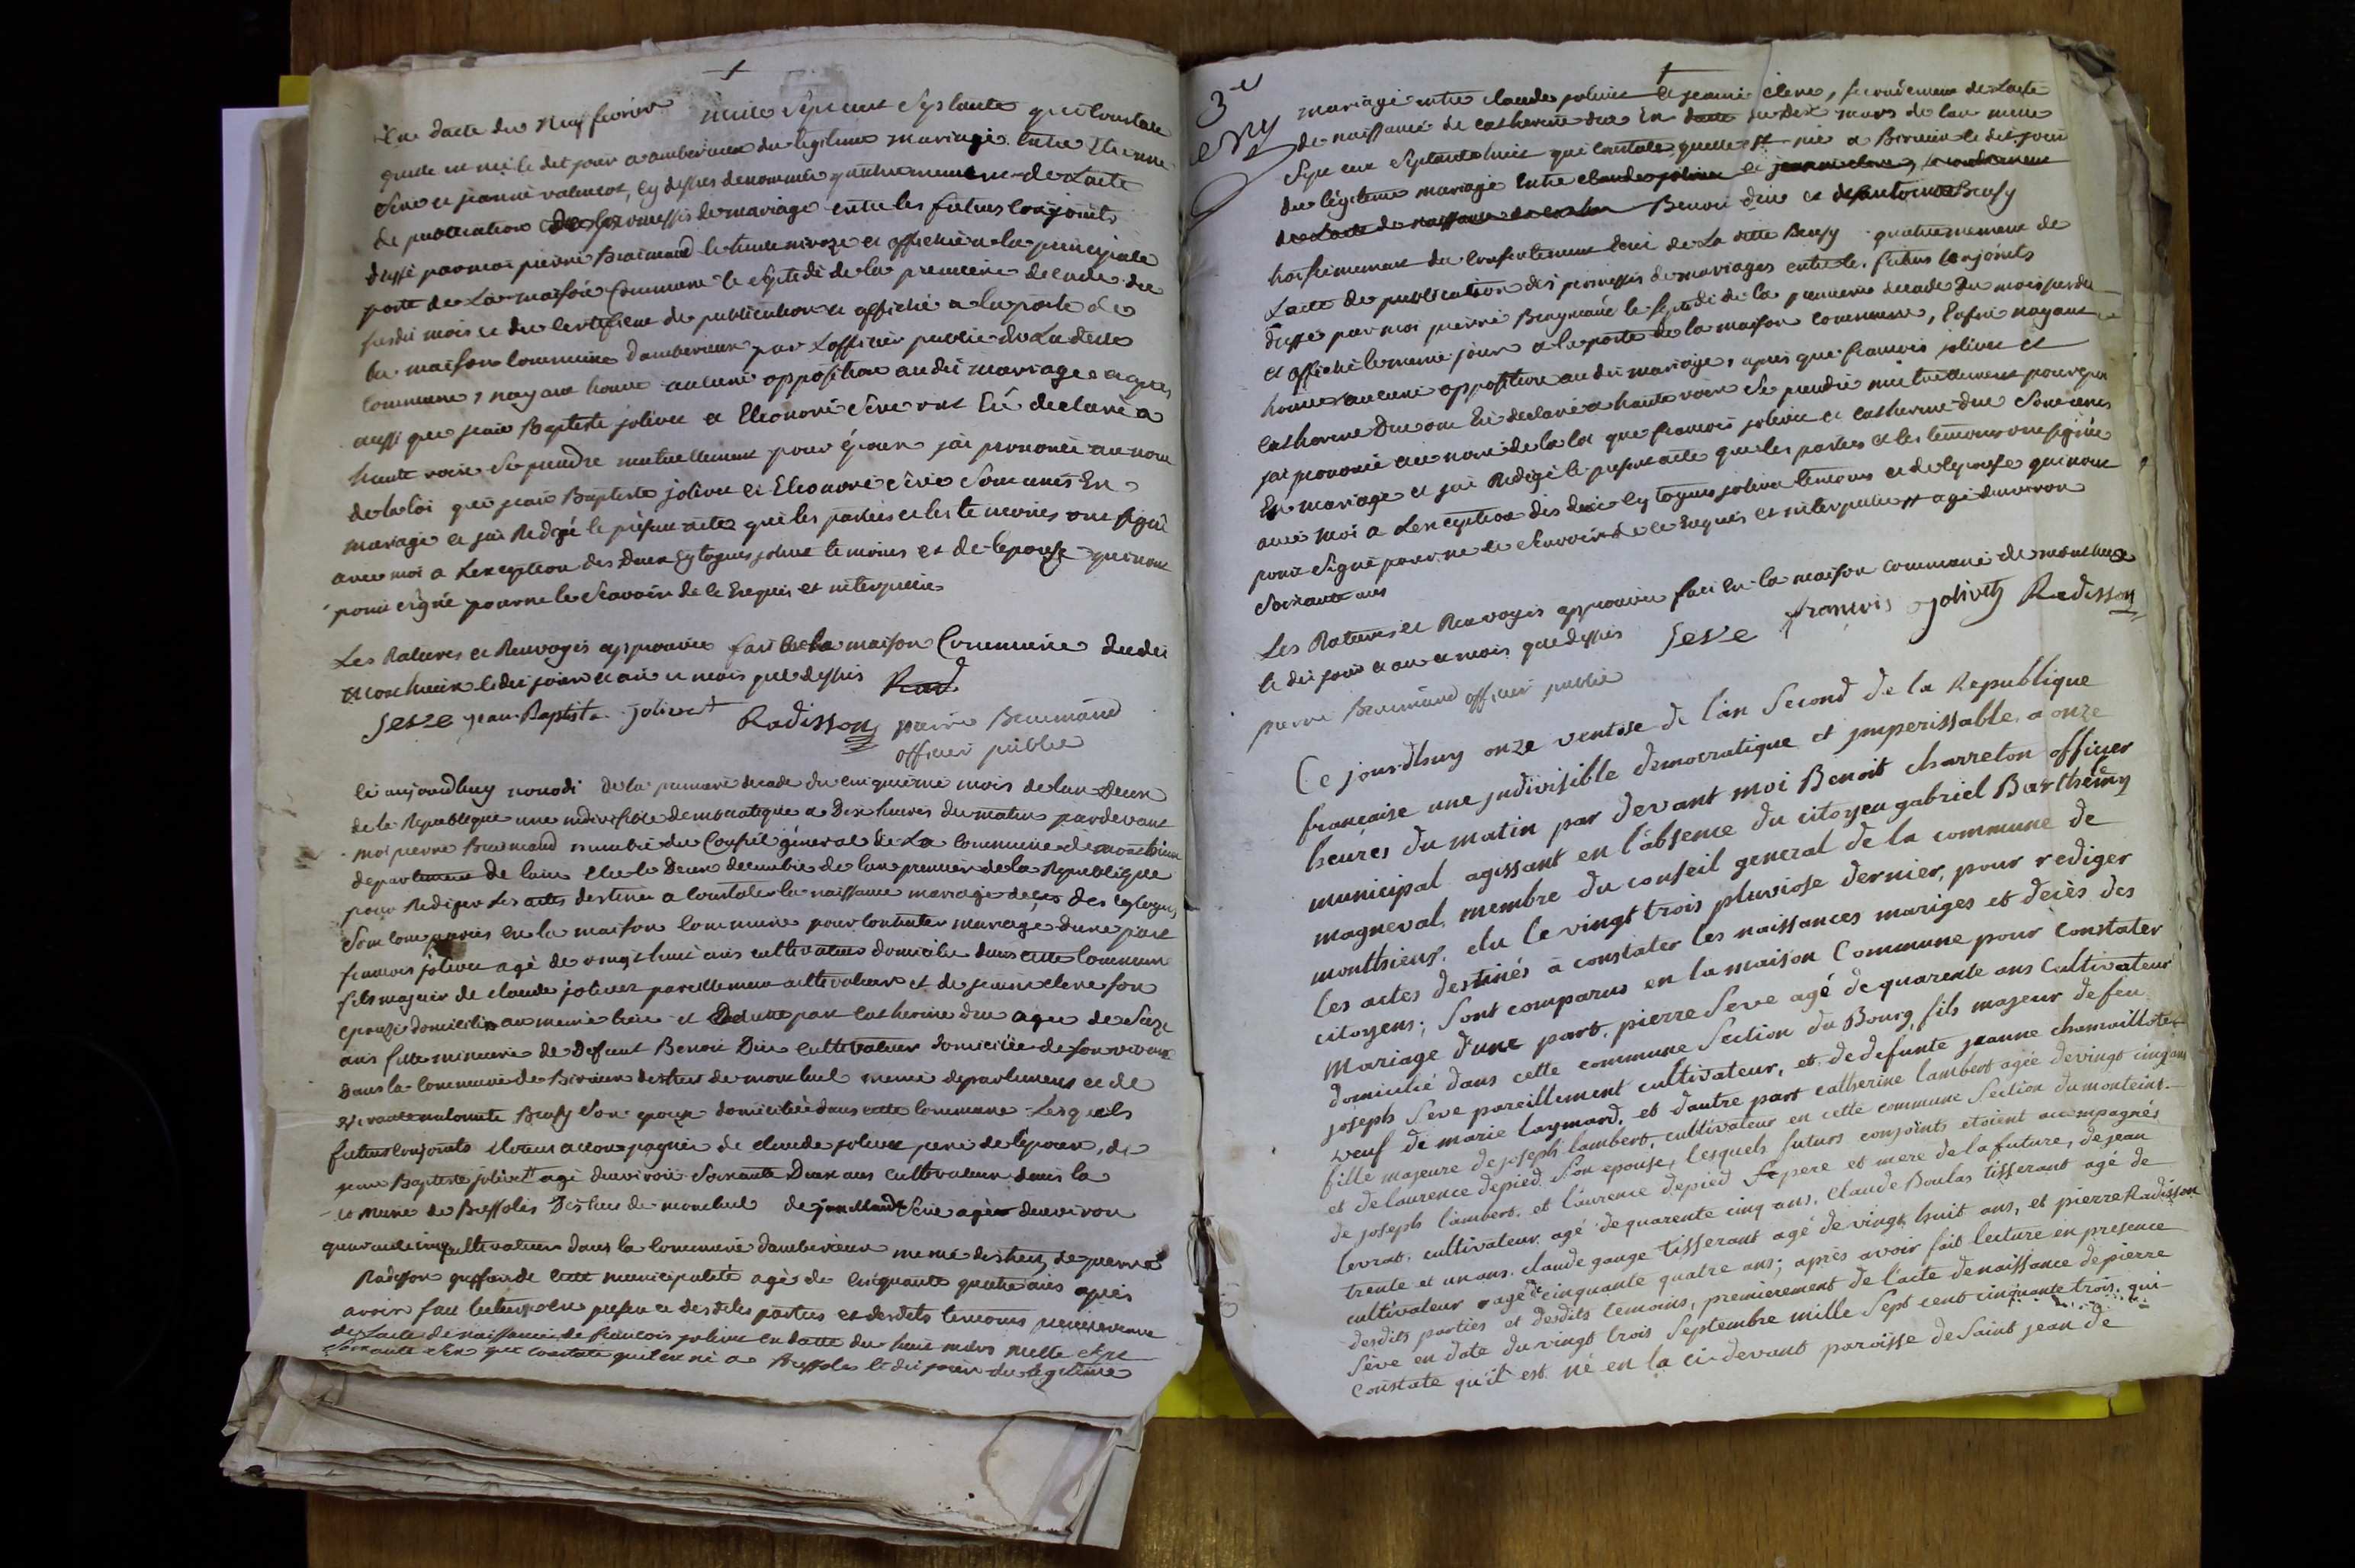 En datte du neuf fevrier mille sept cent septante qui constate
quelle est née le dit jour a amberieux du legitime mariage entre Etienne
Seve et jeanne valencot, cy dessus denommée quatriemement de Lacte
de publication des promesses de mariage entre les futurs conjoints
dressé par moi pierre Braimand le trente nivoze et affichée a la principale
porte de La maison Commune le septidi de la premiere decade du
susdit mois et du certificat de publication et affiché a la porte de
la maison commune damberieux par Lofficier public de La ditte
commune, nayant trouvé aucune opposition audit mariage et apres
aussi que jean Baptiste jolivet et Eleonore Seve ont Eté declaré a
haute voix Se prendre mutuellement pour époux jai prononcé au nom
de la loi que jean Baptiste jolivet et Eleonore Seve Sont unis En
mariage et jai Redigé le présent acte que les parties et les temoins ont signé
avec moi a Lexception des Deux Cytoyens jolivet temoins et de lepouse qui nont
point signé pour ne le Scavoir de ce Enquis et interpellé
Les Ratures et Renvoyes approuvée fait en la maison Commune dudit
Montheux le dit jour et an et mois que dessus Rad
Sesve jean Baptiste jolivet Radisson pierre Braimand
officier public
Ce aujourdhuy nonodi de la premiere decade du cinquieme mois de lan Deux
de la Republique une indivisible democratique a Dix heures du matin pardevant
moi pierre Braimand membre du Conseil géneral de La commune de monthieux
departement de lain elu le Deux decembre de lan premier de la Republique
pour Rediger Les actes destinés a constater la naissance mariage deces des cytoyens
Sont comparus en la maison commune pour contracter mariage dune part
francois jolivet agé de vingt huit ans cultivateur domicilie dans cette commune
fils majeur de claude jolivet pareillement cultivateur et de jeanne clere son
epouze domicilié au meme lieu et Dautre part catherine due agee de Seize
ans fille mineure de Defunt Benoit Due cultivateur domicilie de son vivant
Dans la commune de Birieux district de montluel meme departement et de
antoinette Breusy Son epouze domiciliée dans cette commune Lesquels
futurs conjoints etoient accompagnés de claude jolivet pere de lepoux, de
jean Baptiste jolivet agé denviron Soixante Deux ans cultivateur dans la
comune de Bressoles District de montluel de jean claude Seve agé denviron
quarante cinq cultivateur dans la commune damberieux meme district, de pierre
Radisson greffier de cette municipalité agé de Cinquante quatre ans apres
avoir fait lecture en presence desdites parties et desdits temoins premierement
de Lacte de naissance de francois jolivet en datte du huit mars mille sept
Soixante six qui constate quil est né a Bressoles le dit jour du legitime
3e
mariage entre claude jolivet et jeanne clere, secondement de Lacte
de naissance de catherine due En datte du dix mars de lan mille
Sept cent Septante huit qui constate quelle est née a Birieux le dit jour
du légitime mariage Entre claude jolivet et jeanne clere, secondement
de Lacte de naissance de Benoit due et de antoinette Breusy
troisiemement du consentement de La ditte Breusy quatriemement de
Lacte de publication des promesses de mariages entre les futurs conjoints
dressé par moi pierre Braymand le septidi de la premiere decade du mois susdit
et affiché le meme jour a la porte de la maison commune, lafiche nayant
trouvé aucune opposition audit mariage, apres que francois jolivet et
catherine Due ont Eté declaré a haute voix Se prendre mutuellement pour epoux
jai prononcé au nom de la loi que francois jolivet et catherine due Sont unis
En mariage et jai Redigé le present acte que les parties et les temoins ont signé
avec moi a Lexception des deux cytoyens jolivet temoins et de lepouse qui nont
point Signé pour ne le scavoir de ce Enquis et interpellé agé denviron
Soixante ans
Les Ratures et Renvoyes approuvée fait En la maison commune de montheux
le dit jour et an et mois que dessus Seve francois jolivet Radisson
pierre Braimand officier public
Ce jourdhuy onze ventose de l'an Second de la Republique
française une indivisible democratique et imperissable, a onze
heures du matin par devant moi Benoit charreton officier
municipal agissant en l'absence du citoyen gabriel Barthelemy
magneval, membre du conseil general de la commune de
monthieux, élu le vingt trois pluviose dernier, pour rediger
les actes destinés a constater les naissances mariges et decès des
citoyens; Sont comparus en la maison Commune pour constater
mariage d'une part, pierre Seve agé de quarente ans Cultivateur
domicilié dans cette commune Section du Bourg, fils majeur de feu
joseph Seve pareillement cultivateur, et de defunte jeanne chamaillote
veuf de marie laymard, et dautre part catherine lambert agée de vingt cinq ans
fille majeure de joseph lambert, cultivateur en cette commune Section du monteint
et de laurence depied Son epouse, lesquels futurs conjoints etoient accompagnés
de joseph lambert, et laurence depied pere et mere de la future, de jean
levrat, cultivateur agé de quarente cinq ans, Claude Boulas tisserant agé de
trente et un ans, claude gange tisserant agé de vingt huit ans, et pierre Radisson
cultivateur agé de cinquante quatre ans; après avoir fait lecture en presence
desdits parties et desdits temoins, premierement de l'acte de naissance de pierre
Sève en date du vingt trois Septembre mille Sept cent cinquante trois, qui
constate qu'il est né en la ci-devant paroisse de Saint jean de